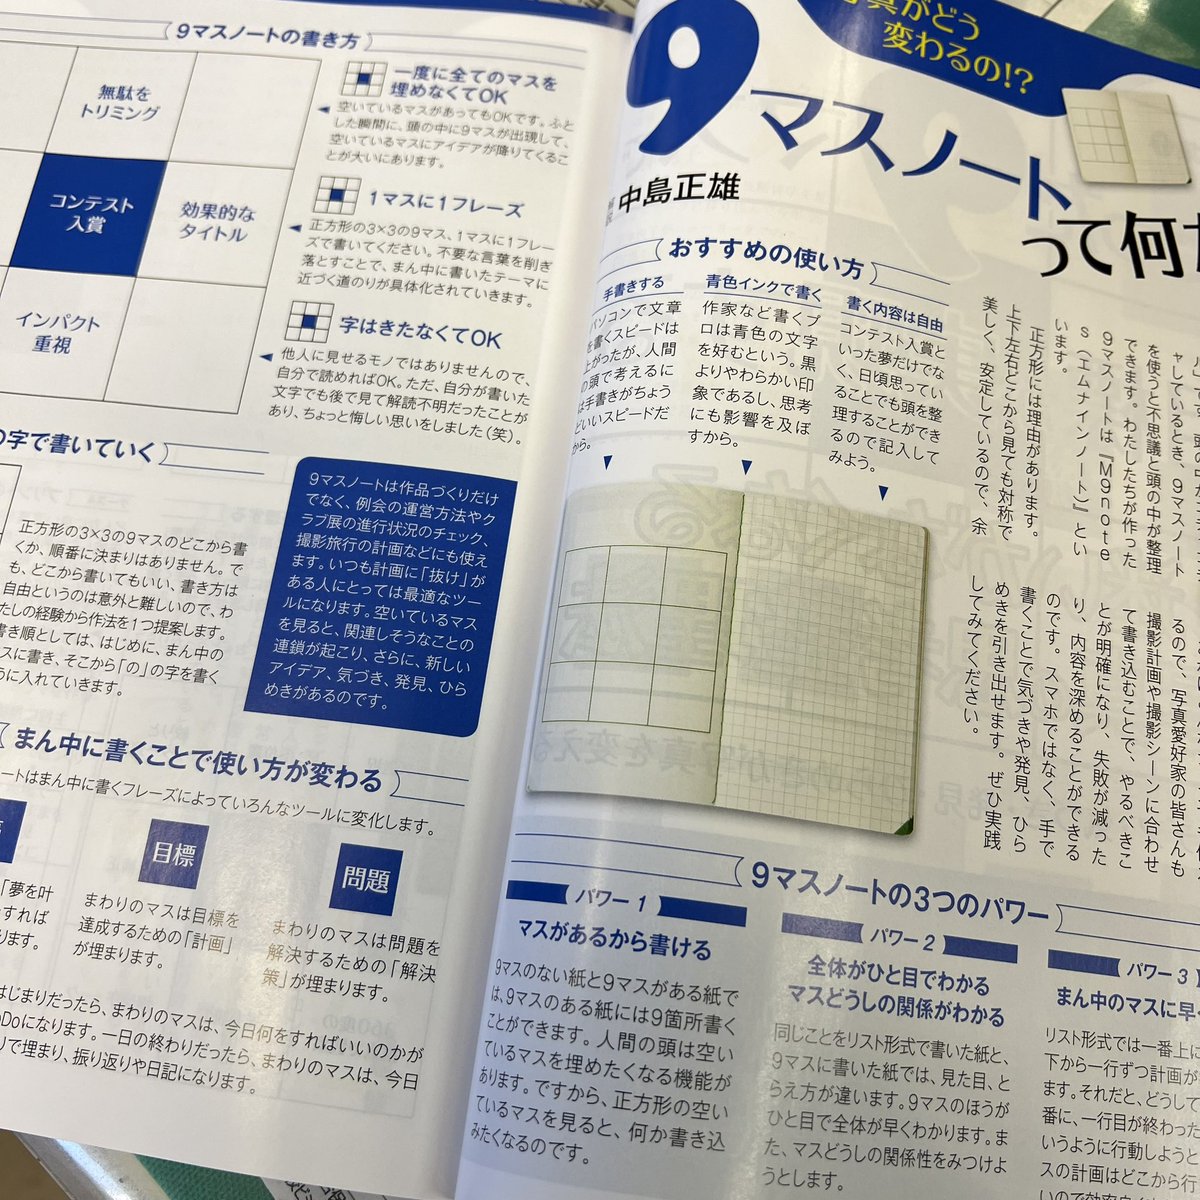 9マスノートの書き方
無駄を
トリミング
コンテスト
入賞
効果的な
タイトル
インパクト
重視
一度に全てのマスを
埋めなくてOK
空いているマスがあってもOKです。ふと
した瞬間に、頭の中に9マスが出現して、
空いているマスにアイデアが降りてくるこ
とが大いにあります。
1マスに1フレーズ
正方形の3×3の9マス、1マスに1フレー
ズで書いてください。不要な言葉を削ぎ
落とすことで、まん中に書いたテーマに
近づく道のりが具体化されていきます。
字はきたなくてOK
他人に見せるモノではありませんので、
自分で読めればOK。ただ、自分が書いた
文字でも後で見て解読不明だったことが
あり、ちょっと悔しい思いをしました(笑)。
の字で書いていく
正方形の3×3の9マスのどこから書
くか、順番に決まりはありません。で
も、どこから書いてもいい、書き方は
自由というのは意外と難しいので、わ
たしの経験から作法を1つ提案します。
書き順としては、はじめに、まん中の
スに書き、そこから「の」の字を書く
うに入れていきます。
9マスノートは作品づくりだけ
でなく、例会の運営方法やク
ラブ展の進行状況のチェック、
撮影旅行の計画などにも使え
ます。いつも計画に「抜け」が
ある人にとっては最適なツー
ルになります。空いているマス
を見ると、関連しそうなことの
連鎖が起こり、さらに、新しい
アイデア、気づき、発見、ひら
めきがあるのです。
まん中に書くことで使い方が変わる
ノートはまん中に書くフレーズによっていろんなツールに変化します。
「夢を叶
すれば
ります。
目標
まわりのマスは目標を
達成するための「計画」
が埋まります。
問題
まわりのマスは問題を
解決するための「解決
策」が埋まります。
はじまりだったら、まわりのマスは、今日何をすればいいのかが
oDoになります。一日の終わりだったら、まわりのマスは、今日
りで埋まり、振り返りや日記になります。
真がどう
変わるの!?
9マスノート
って何
解説
中島正雄
おすすめの使い方
手書きする
パソコンで文章
を書くスピードは
上がったが、人間
の頭で考えるに
は手書きがちょう
どいいスピードだ
から。
青色インクで書く
作家など書くプ
ロは青色の文字
を好むという。黒
よりやわらかい印
象であるし、思考
にも影響を及ぼ
すから。
書く内容は自由
コンテスト入賞と
いった夢だけでな
く、日頃思ってい
ることでも頭を整
理することができ
るので記入して
みよう。
ャしているとき、9マスノート
を使うと不思議と頭の中が整理
できます。わたしたちが作った
9マスノートは『M9note
s(エムナインノート)』とい
います。
正方形には理由があります。
上下左右どこから見ても対称で
美しく、安定しているので、余
るので、写真愛好家の皆さんも
撮影計画や撮影シーンに合わせ
て書き込むことで、やるべきこ
とが明確になり、失敗が減った
り、内容を深めることができる
のです。スマホではなく、手で
書くことで気づきや発見、ひら
めきを引き出せます。ぜひ実践
してみてください。
9マスノートの3つのパワー
パワー 1
マスがあるから書ける
9マスのない紙と9マスがある紙で
は、9マスのある紙には9箇所書く
ことができます。人間の頭は空い
ているマスを埋めたくなる機能が
あります。ですから、正方形の空い
ているマスを見ると、何か書き込
みたくなるのです。
パワー 2
全体がひと目でわかる
マスどうしの関係がわかる
同じことをリスト形式で書いた紙と、
9マスに書いた紙では、見た目、と
らえ方が違います。9マスのほうが
ひと目で全体が早くわかります。ま
た、マスどうしの関係性をみつけよ
うとします。
パワー 3
まん中のマスに早
リスト形式では一番上に
下から一行ずつ計画が
ます。それだと、どうして
番に、一行目が終わった
いうように行動しようと
スの計画はどこから行